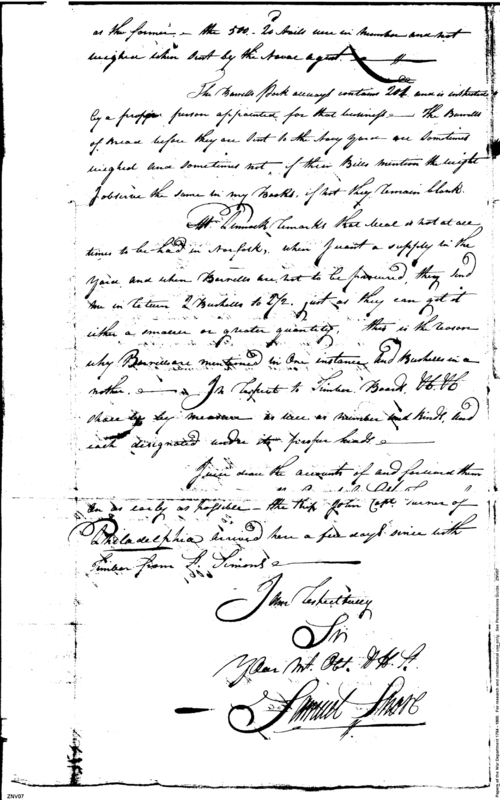 as the former – the 500. 20 Nails were in number and not
weighed when sent by the Naval agent.
The Barrells Pork always contains 200 and is inspected
by a proper person appointed for that business – The Barrells
of Bread before they are sent to the Navy Yard are sometimes
weighed and sometimes not, if their Bills mention the weight
I observe the same in my Books, if not they remain blank.
Mr. Pennock remarks that Meal is not at all
times to be had in Norfolk, when I want a supply in the
Yard and when Barrells are not to be procured, they send
me in between 2 Bushells to 2/2 just as they can get it
either a smaller or greater quantity, this is the reason
why Barrells are mentioned in one instance and Bushells in a
nother. – In respect to Timber Board, &c. &c
shall be by measure as well as number and kinds, and
each designated under its proper heads
I will draw the accounts of and forward them
on as early as possible – the ship John Capt. Turner of
Philadelphia arrived here a few days since with
Timber from St. Simons
I am respectfully
Sir
Your Mt. Obt. H. St.
Samuel Shore
ZNV07